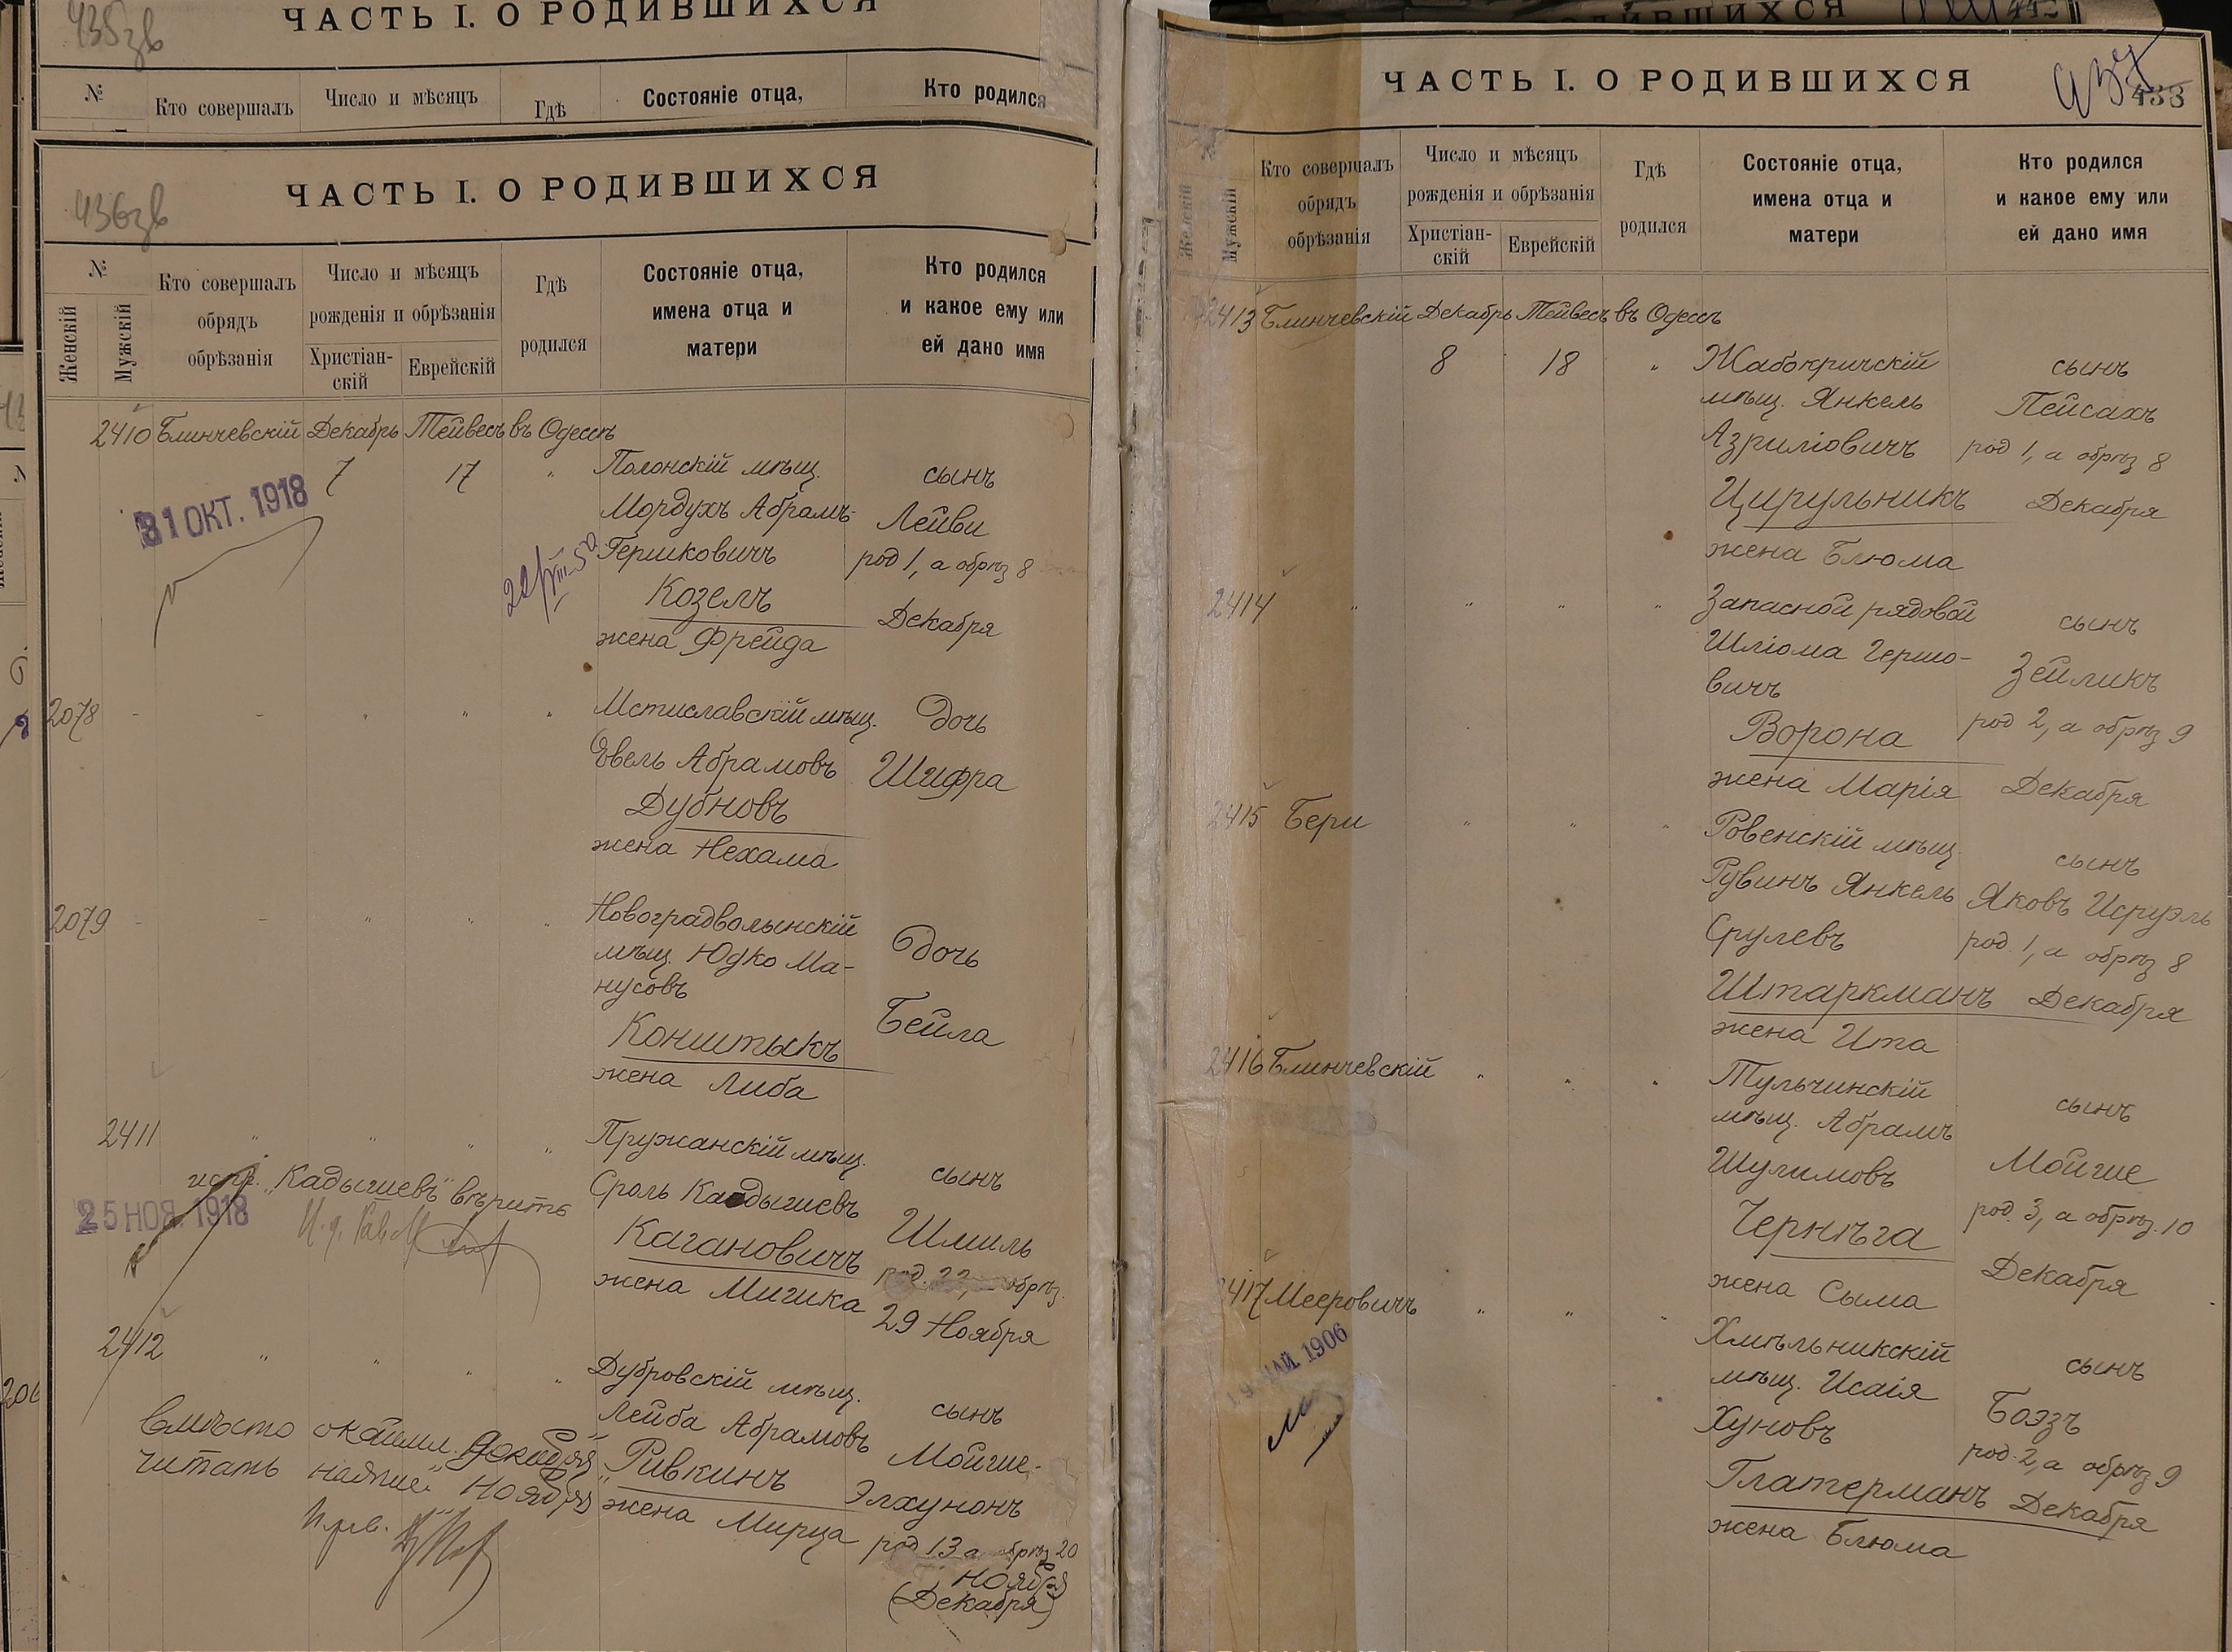 435 зв
ЧАСТЬ I. О РОДИВШИХСЯ
№
Кто совершалъ
Число и мѣсяцъ
Гдѣ
Состояніе отца,
Кто родился
436 зв
ЧАСТЬ I. О РОДИВШИХСЯ
№
Женскій
Мужскій
Кто совершалъ
обрядъ
обрѣзанія
Число и мѣсяцъ
рожденія и обрѣзанія
Христіан-
скій
Еврейскій
Гдѣ
родился
Состояніе отца,
имена отца и
матери
Кто родился
и какое ему или
ей дано имя
2410 Блинчевскій Декабрь Тейвесъ въ Одессѣ
7 17 " Полонскій мѣщ. сынъ
31 ОКТ. 1918
Мордухъ Абрамъ- Лейви
Гершковичъ род 1, а обрѣз 8
Козелъ Декабря
жена Фрейда
2078 - - " " " Мстиславскій мѣщ. Дочь
Евель Абрамовъ Шифра
Дубновъ
жена Нехама
2079 - - " " " Новоградволынскій
мѣщ. Юдко Ма- Дочь
нусовъ
Конштыкъ Бейла
жена Либа
2411 " " " " Пружанскій мѣщ. сынъ
испр. "Кадышевъ" вѣрить
25 НОЯ. 1918
Сроль Кадышевъ Шмиль
Кагановичъ род. 22, а обрѣз.
жена Мишка 29 Ноября
2412 " " " " Дубровскій мѣщ. сынъ
Лейба Абрамовъ Мойше-
Ривкинъ Элхунонъ
жена Мирца род 13 а обрѣз 20
Ноября
(Декабря)
Вмѣсто Декабря
читать Ноября
442
РОДИВШИХСЯ
ЧАСТЬ I. О РОДИВШИХСЯ
437
433
Женскій
Мужскій
Кто совершалъ
обрядъ
обрѣзанія
Число и мѣсяцъ
рожденія и обрѣзанія
Христіан-
скій
Еврейскій
Гдѣ
родился
Состояніе отца,
имена отца и
матери
Кто родился
и какое ему или
ей дано имя
2413 Блинчевскій Декабрь Тейвесъ въ Одессѣ
8 18 " Жабокричскій сынъ
мѣщ. Янкель Пейсахъ
Азриліовичъ род 1, а обрѣз 8
Цирульникъ Декабря
жена Блюма
2414 " " " " Запасной рядовой сынъ
Шліома Гершо- Зейликъ
вичъ
Ворона род 2, а обрѣз 9
жена Марія Декабря
2415 Бери " " " Ровенскій мѣщ. сынъ
Рувинъ Янкель Яковъ Исруэль
Срулевъ род. 1, а обрѣз 8
Штаркманъ Декабря
жена Ита
2416 Блинчевскій " " " Тульчинскій сынъ
мѣщ. Абрамъ
Шулимовъ Мойше
Чернѣга род. 3, а обрѣз. 10
жена Сыма Декабря
2417 Мееровичъ " " " Хмѣльникскій сынъ
19 МАЙ 1906
мѣщ. Исаія Боэзъ
Хуновъ род. 2, а обрѣз 9
Глатерманъ Декабря
жена Блюма